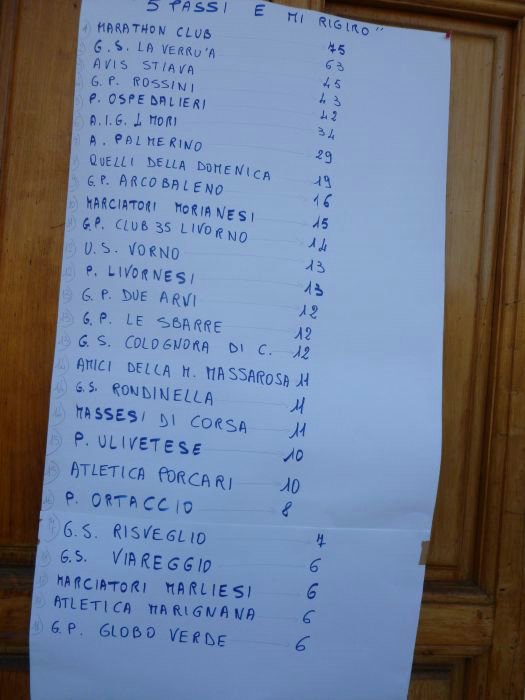 "5 PASSI E MI RIGIRO"
MARATHON CLUB 75
G.S. LA VERRU'A 63
AVIS STIAVA 45
G.P. ROSSINI 43
P. OSPEDALIERI 42
A.I.G. I MORI 34
A. PALMERINO 29
QUELLI DELLA DOMENICA 19
G.P. ARCOBALENO 16
MARCIATORI MORIANESI 15
G.P. CLUB 35 LIVORNO 14
U.S. VORNO 13
P. LIVORNESI 13
G.P. DUE ARVI 12
G.P. LE SBARRE 12
G.S. COLOGNORA DI C. 12
AMICI DELLA M. MASSAROSA 11
G.S. RONDINELLA 11
MASSESI DI CORSA 11
P. ULIVETESE 10
ATLETICA PORCARI 10
P. ORTACCIO 8
G.S. RISVEGLIO 7
G.S. VIAREGGIO 6
MARCIATORI MARLIESI 6
ATLETICA MARIGNANA 6
G.P. GLOBO VERDE 6